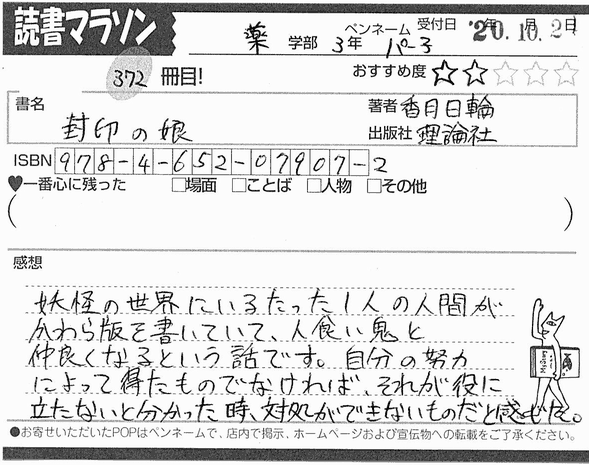 読書マラソン
薬 学部 3年 ペンネーム パーコ 受付日 '20.10.2日
372 冊目! おすすめ度 ☆☆☆☆☆
書名 封印の娘 著者 香月日輪
出版社 理論社
ISBN 978-4-652-07907-2
♥一番心に残った □場面 □ことば □人物 □その他
( )
感想
妖怪の世界にいるたった1人の人間が
かわら版を書いていて、人食い鬼と
仲良くなるという話です。自分の努力
によって得たものでなければ、それが役に
立たないと分かった時、対処ができないものだと感じた。
●お寄せいただいたPOPはペンネームで、店内で掲示、ホームページおよび宣伝物への転載をご了承ください。